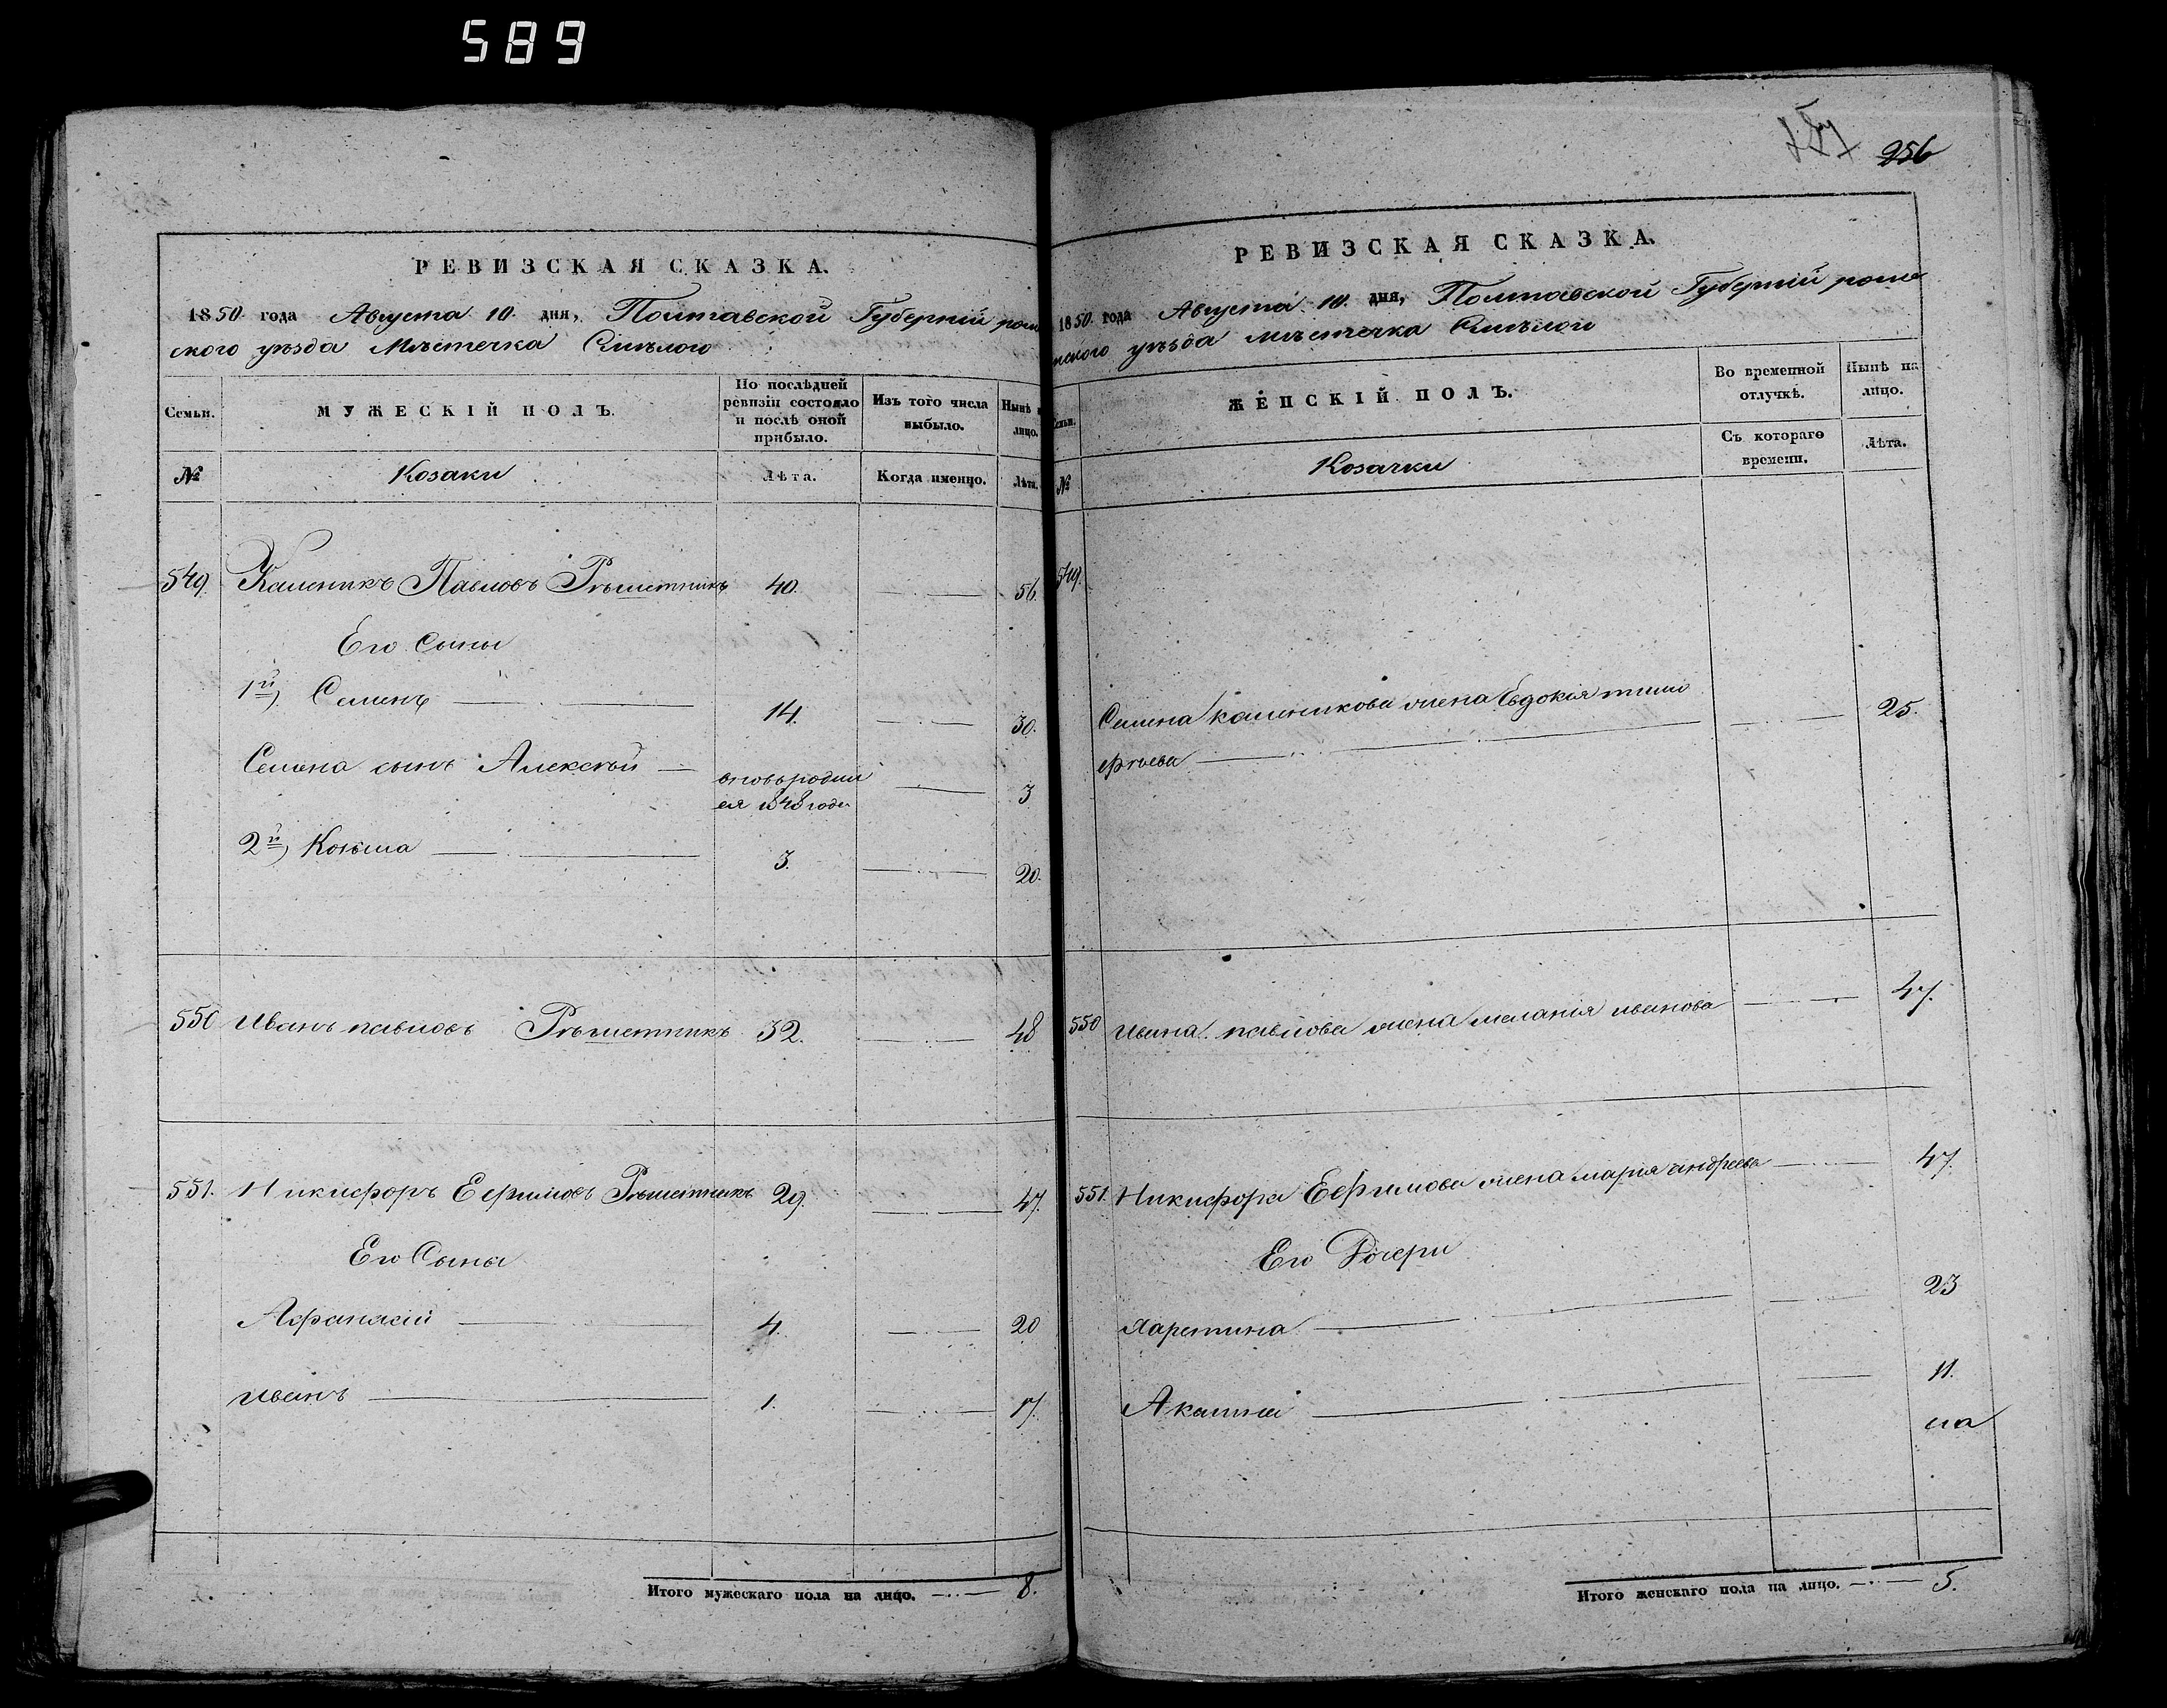 589
РЕВИЗСКАЯ СКАЗКА.
1850 года Августа 10 дня, Полтавской Губерніи роме
ского уѣзда Мѣстечка Смѣлого
Семьи.
МУЖЕСКІЙ ПОЛЪ.
По послѣдней ревизіи состояло и послѣ оной прибыло.
Изъ того числа выбыло.
Нынѣ
лицо.
№
Козаки
Лѣта.
Когда именно.
Лѣта.
549. Калиникъ Павловъ Рѣшетникъ 40. 56.
Его Сыны
1й, Семенъ 14. 30.
Семена сынъ Алексѣй вновь родил
ся 1848 года 3
2й, Козьма 3. 20.
550 Иванъ павловъ Рѣшетникъ 32. 48
551. Никифоръ Ефимовъ Рѣшетникъ 29. 47.
Его Сыны
Афанасій 4. 20
Иванъ 1. 17.
Итого мужескаго пола на лицо. 8.
256
РЕВИЗСКАЯ СКАЗКА.
1850 года Августа 10 дня, Полтавской Губерніи роме
нского уѣзда мѣстечка Смѣлого
Семьи.
ЖЕНСКІЙ ПОЛЪ.
Во временной отлучкѣ.
Нынѣ на лицо.
№
Козачки
Съ котораго времени.
Лѣта.
549.
Семена калиникова жена Евдокія тимо
фѣева 25.
550 Ивана павлова жена меланія иванова 47.
551. Никифора Ефимова жена марія андреева 47.
Его Дочери
Харитина 23
Акилина 11.
Итого женскаго пола на лицо. 5.